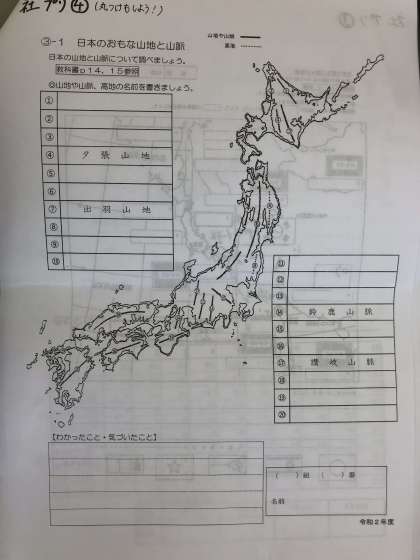 社プリ④(丸つけもしよう!)
③-1 日本のおもな山地と山脈
山地や山脈
高地
日本の山地と山脈について調べましょう。
教科書p14、15参照
◎山地や山脈、高地の名前を書きましょう。
①
②
③
④ 夕張山地
⑤
⑥
⑦ 出羽山地
⑧
⑨
⑩
⑪
⑫
⑬
⑭ 鈴鹿山脈
⑮
⑯
⑰ 讃岐山脈
⑱
⑲
⑳
【わかったこと・気づいたこと】
( )組 ( )番
名前
令和2年度